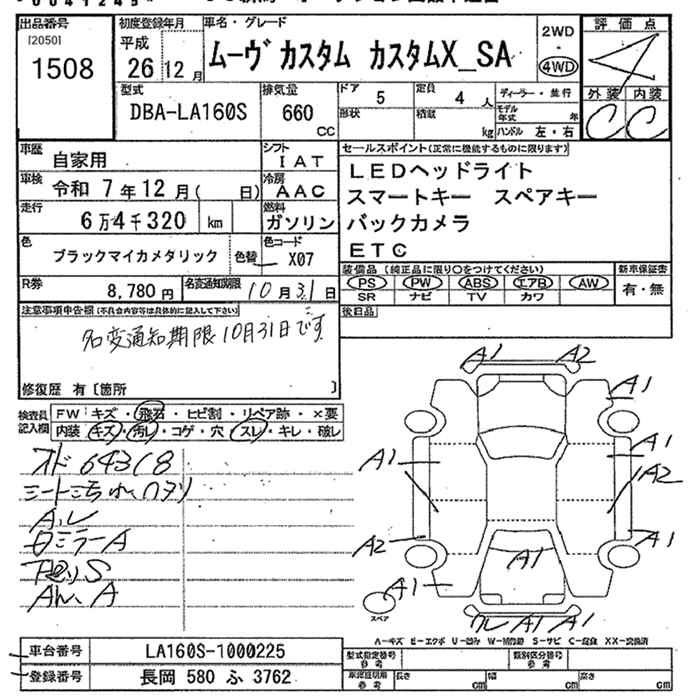 出品番号
[2050]
1508
初度登録年月
平成
26 12月
車名・グレード
ムーヴカスタム カスタムX_SA
2WD
・
4WD
評価点
4
外装 内装
C C
型式
DBA-LA160S
排気量
660
CC
ドア 5
形状
定員 4 人
積載 kg
ディーラー・並行
モデル年式 年
ハンドル 左・右
車歴
自家用
シフト
IAT
車検 令和 7年12月( 日)
冷房
AAC
走行
6万4千320 km
燃料
ガソリン
色
ブラックマイカメタリック
色替
色コード
X07
R券
8,780円
名変通知期限
10月31日
セールスポイント(正常に機能するものに限ります)
LEDヘッドライト
スマートキー スペアキー
バックカメラ
ETC
装備品(純正品に限り○をつけてください)
PS PW ABS エアB AW
SR ナビ TV カワ
新車保証書
有・無
後日品
注意事項申告欄(不具合内容等は具体的に記入して下さい)
名変通知期限10月31日です
修復歴 有〔箇所 〕
検査員
記入欄
FW キズ・飛石・ヒビ割・リペア跡・×要
内装 キズ・汚レ・コゲ・穴・スレ・キレ・破レ
オド 64318
A1 A2
A1
A1 A1
A2
A2 A1
A1 A1
A1 A1
スペア
A―キズ E―エクボ U―凹み W―補修跡 S―サビ C―腐食 XX―交換済
車台番号 LA160S-1000225
登録番号 長岡 580 ふ 3762
型式指定番号
参考
類別区分番号
参考
車両証明用
参考
長さ cm 幅 cm 高さ cm